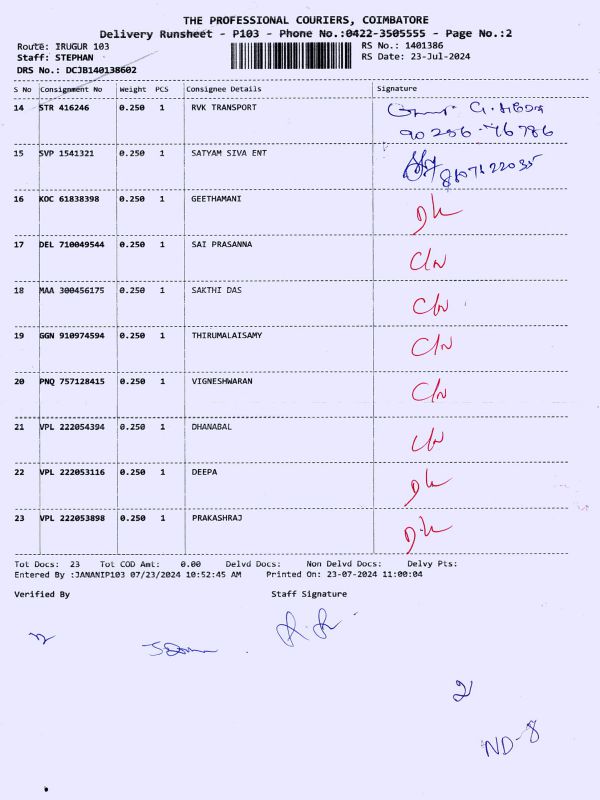 THE PROFESSIONAL COURIERS, COIMBATORE
Delivery Runsheet - P103 - Phone No.:0422-3505555 - Page No.:2
Route: IRUGUR 103 RS No.: 1401386
Staff: STEPHAN RS Date: 23-Jul-2024
DRS No.: DCJB140138602
S No Consignment No Weight PCS Consignee Details Signature
14 STR 416246 0.250 1 RVK TRANSPORT
90256-76786
15 SVP 1541321 0.250 1 SATYAM SIVA ENT
16 KOC 61838398 0.250 1 GEETHAMANI D/L
17 DEL 710049544 0.250 1 SAI PRASANNA C/N
18 MAA 300456175 0.250 1 SAKTHI DAS C/N
19 GGN 910974594 0.250 1 THIRUMALAISAMY C/N
20 PNQ 757128415 0.250 1 VIGNESHWARAN C/N
21 VPL 222054394 0.250 1 DHANABAL C/N
22 VPL 222053116 0.250 1 DEEPA D/L
23 VPL 222053898 0.250 1 PRAKASHRAJ D/L
Tot Docs: 23 Tot COD Amt: 0.00 Delvd Docs: Non Delvd Docs: Delvy Pts:
Entered By :JANANIP103 07/23/2024 10:52:45 AM Printed On: 23-07-2024 11:00:04
Verified By Staff Signature
2
ND-8